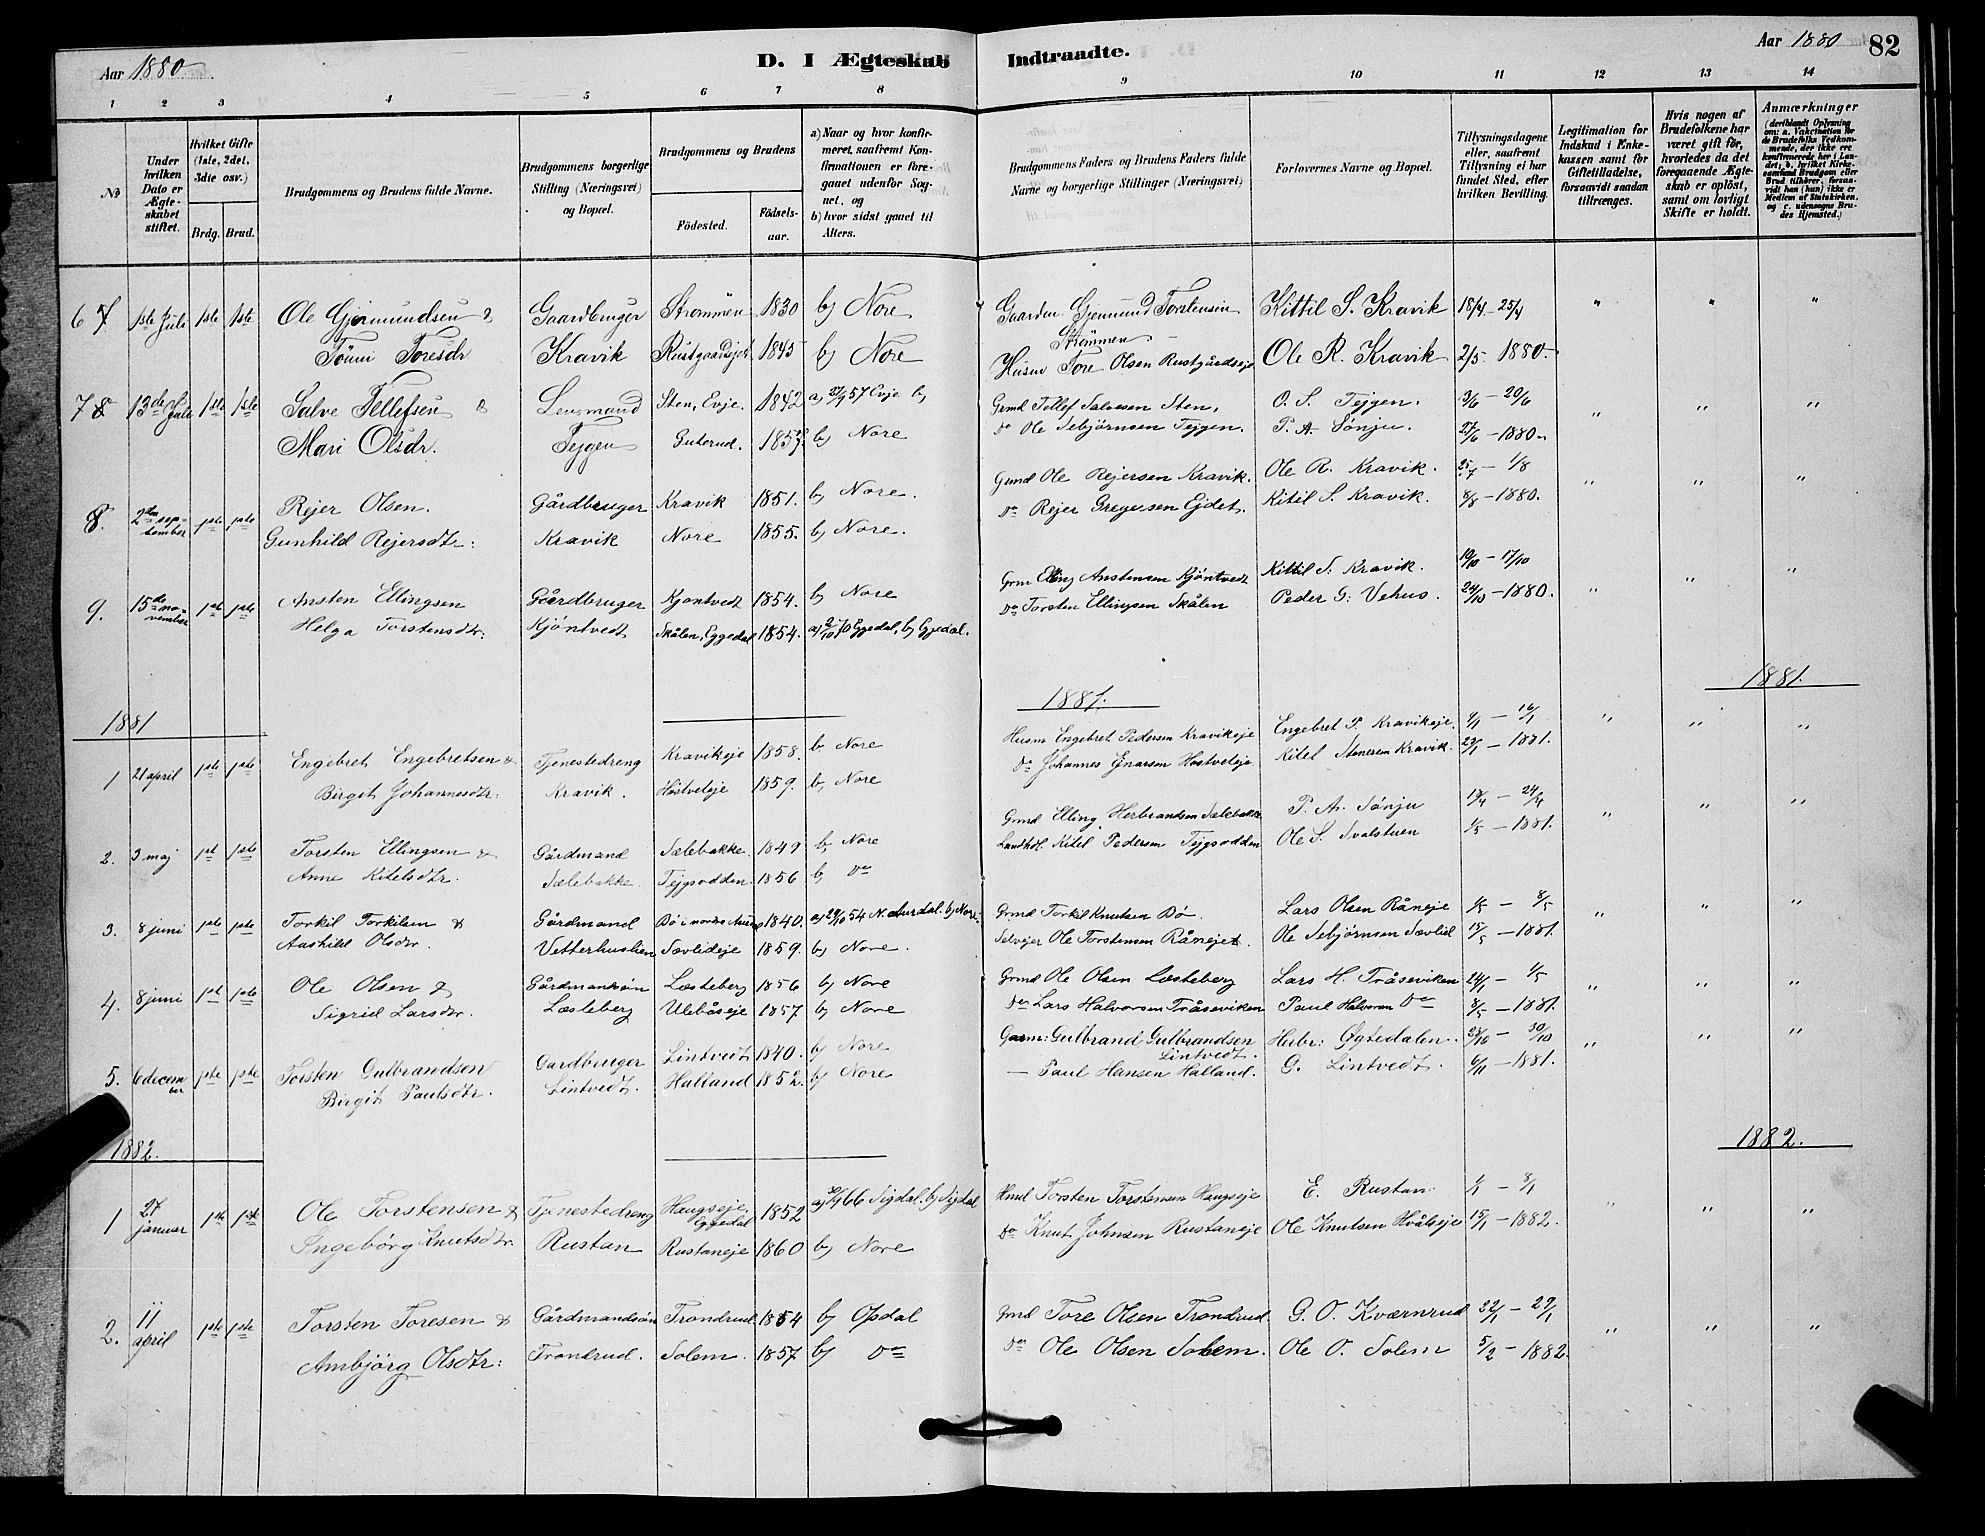 Aar 1880
D. I Ægteskab Indtraadte.
Aar 1880 82
1 2 3 4 5 6 7 8 9 10 11 12 13 14
No
Under hvilken Dato er Ægteskabet stiftet.
Hvilket Gifte (1ste, 2det, 3die osv.)
Brdg. Brud.
Brudgommens og Brudens fulde Navne.
Brudgommens borgerlige Stilling (Næringsvei) og Bopæl.
Brudgommens og Brudens
Fødested. Fødselsaar.
a) Naar og hvor konfirmeret, saafremt Konfirmationen er foregaaet udenfor Sognet, og
b) hvor sidst gaaet til Alters.
Brudgommens Faders og Brudens Faders fulde Navne og borgerlige Stillinger (Næringsvei)
Forlovernes Navne og Bopæl.
Tillysningsdagene eller, saafremt Tillysning ei har fundet Sted, efter hvilken Bevilling.
Legitimation for Indskud i Enkekassen samt for Giftetilladelse, forsaavidt saadan tiltrænges.
Hvis nogen af Brudefolkene har været gift før, hvorledes da det foregaaende Ægteskab er opløst, samt om lovligt Skifte er holdt.
Anmærkninger (deriblandt Oplysning om: a. Vakcination for de Brudefolks Vedkommende, der ikke ere konfirmerede her i Landet; b. hvilket Kirkesamfund Brudgom eller Brud tilhører, forsaavidt han (hun) ikke er Medlem af Statskirken, og c. udensogns Brudes Hjemsted.)
6 1ste Juli 1ste 1ste Ole Gjermundsen & Gaardbruger Strømmen 1830 b) Nore Gaardm. Gjermund Torstensen Strømmen Kittil S. Kravik 18/4 - 25/4 " " "
Tøni Toresdr Kravik Rustgaardsejet 1845 b) Nore Husm Tore Olsen Rustgårdseje Ole R. Kravik 2/5 1880.
7 13de Juli 1ste 1ste Salve Tellefsen & Lensmand Sten, Evje. 1842 a) 27/9 57 Evje b) Grmd Tellef Salvesen Sten, O. S. Tejgen. 13/6 - 20/6 " " "
Mari Olsdr. Tejgen Guterud. 1857. b) Nore Do Ole Sebjørnsen Tejgen. P. A. Sønju. 27/6 - 1880.
8. 2den september 1ste 1ste Rejer Olsen. Gårdbruger Kravik 1851. b) Nore. Grmd Ole Rejersen Kravik. Ole R. Kravik. 25/7 - 1/8 " " "
Gunhild Rejersdtr: Kravik Nore 1855. b) Nore. Do Rejer Gregersen Ejdet. Kitil S. Kravik. 8/8 - 1880.
9. 15de november 1ste 1ste Ansten Ellingsen Gårdbruger Kjøntvedt 1854. b) Nore Grm Elling Anstensen Kjøntvedt Kittil S. Kravik. 10/10 - 17/10 " " "
Helga Torstensdtr: Kjøntvedt Skålen, Eggedal 1854. a) 2/10 70 Eggedal, b) Eggedal. Do Torsten Ellingsen Skålen Peder G: Vehus. 24/10 - 1880.
1881 1881. 1881.
1 21 april 1ste 1ste Engebret Engebretsen & Tjenestedreng Kravikeje 1858. b) Nore Husm Engebret Pedersen Kravikeje Engebret P. Kravikeje. 9/1 - 16/1 " " "
Birgit Johannesdtr. Kravik. Høstveteje 1859. b) Nore Do Johannes Ejnarsen Høstveteje Kitel Stenersen Kravik. 23/1 - 1881.
2. 3 maj 1ste 1ste Torsten Ellingsen & Gårdmand Sælebakke. 1849 b) Nore Grmd Elling Herbrandsen Sælebakke P. A. Sønju 18/4 - 24/4 " " "
Anne Kitelsdtr. Sælebakke. Tejgsodden. 1856 b) Do Landhdl. Kitel Pedersen Tejgsodden Ole S. Svalstuen 1/5 - 1881.
3. 8 juni 1ste 1ste Torkil Torkilsen & Gårdmand Bø i nordre Aurdal 1840. a) 29/10 54 N. Aurdal. b) Nore. Grmd Torkil Knutsen Bø. Lars Olsen Råneje 1/5 - 8/5 " " "
Aashild Olsdtr. Vetterhuslien Sævlideje 1859. b) Nore. Selvejer Ole Torstensen Rånejet. Ole Sebjørnsen Sævlid 15/5 - 1881.
4. 8 juni 1ste 1ste Ole Olsen & Gårdmandsøn Læsteberg 1856 b) Nore Grmd Ole Olsen Læsteberg Lars H. Tråseviken 24/4 - 1/5 " " "
Sigrid Larsdtr. Læsteberg Ulebåseje 1857 b) Nore Do Lars Halvorsen Tråseviken Paul Halvorsen Do 8/5 - 1881.
5. 6 december 1ste 1ste Torsten Gulbrandsen Gardbruger Lintvedt 1840. b) Nore Garm: Gulbrand Gulbrandsen Lintvedt. Herbr: Øgtedalen. 23/10 - 30/10 " " "
Birgit Paulsdtr. Lintvedt. Halland 1852. b) Nore — Paul Hansen Halland. G. Lintvedt. 6/11 - 1881.
1882. 1882.
1 27 januar 1ste 1ste Ole Torstensen & Tjenestedreng Haugseje, Eggedal 1852 a) 30/9 66 Sigdal. b) Sigdal Hmd Torsten Torstensen Haugseje E. Rustan 1/1 - 8/1 " " "
Ingebörg Knutsdtr. Rustan Rustaneje 1860 b) Nore Do Knut Johnsen Rustaneje Ole Knutsen Hvåleeje 15/1 - 1882.
2. 11 april 1ste 1ste Torsten Toresen & Gårdmandsøn Trondrud. 1854 b) Opdal Grmd Tore Olsen Trondrud. G. O. Kværnrud 22/1 - 29/1 " " "
Ambjörg Olsdtr: Trondrud. Solem. 1857 b) Do Do Ole Olsen Solem. Ole O. Solem 5/2 - 1882.